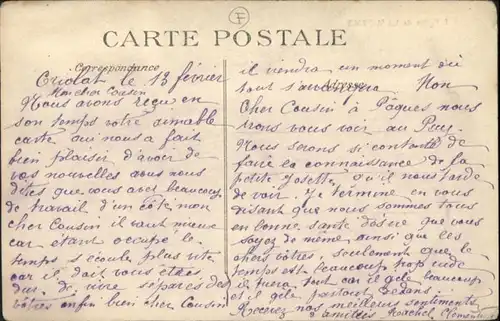 F
CARTE POSTALE
Correspondance
Criolat le 13 février
Mon cher Cousin
Nous avons reçu en
son temps votre aimable
carte qui nous a fait
bien plaisir d'avoir de
vos nouvelles vous nous
dites que vous avez beaucoup
de travail d'un côté mon
cher Cousin il vaut mieux
car étant occupé le
temps s'écoule plus vite
car il doit vous être
dur de vivre séparés des
vôtres enfin bien cher Cousin
il viendra un moment où
tout s'arrangera Mon
Adresse
Cher Cousin à Pâques nous
irons vous voir au Puy
Nous serons si contents de
faire la connaissance de la
petite Josette qu'il nous tarde
de voir. Je termine en vous
disant que nous sommes tous
en bonne santé désire que vous
soyez de même ainsi que les
chers vôtres, seulement que le
temps est beaucoup trop rude
il gèle beaucoup
et il gèle partout dedans.
Recevez nos meilleurs sentiments
d'amitiés Rachel Clément